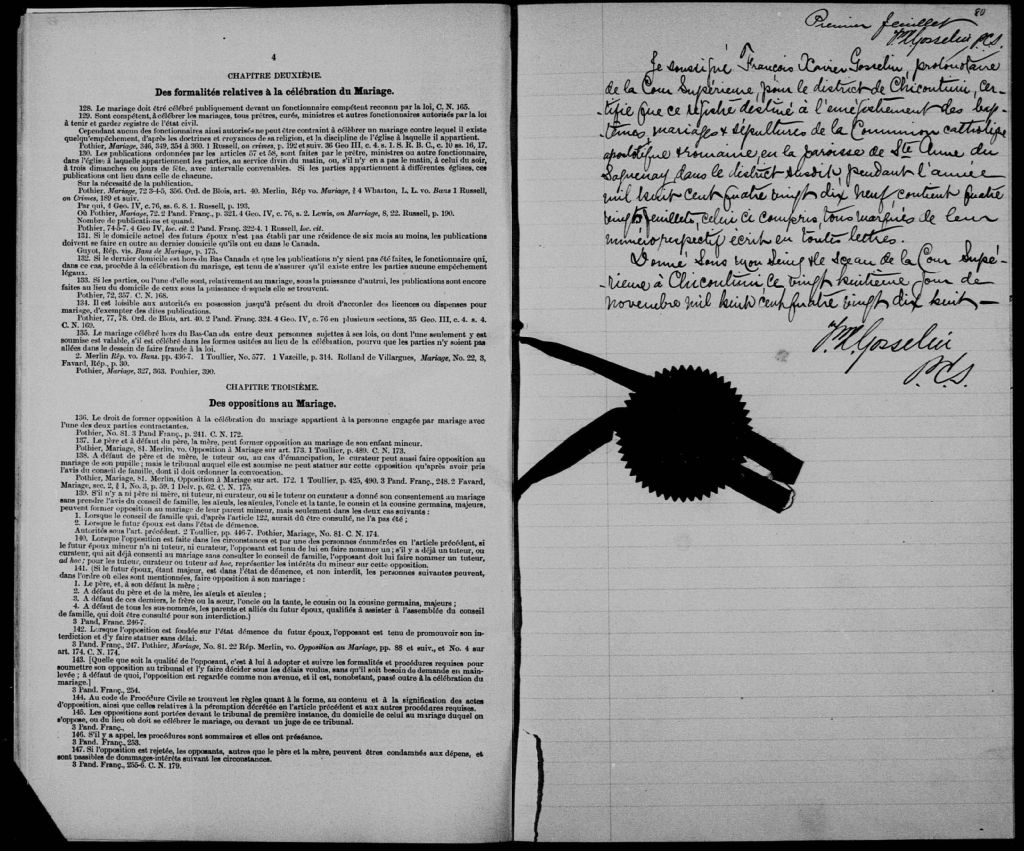 4
CHAPITRE DEUXIÈME.
Des formalités relatives à la célébration du Mariage.
128. Le mariage doit être célébré publiquement devant un fonctionnaire compétent reconnu par la loi, C. N. 165.
129. Sont compétent, à célébrer les mariages, tous prêtres, curés, ministres et autres fonctionnaires autorisés par la loi
à tenir et garder registre de l'état civil.
Cependant aucun des fonctionnaires ainsi autorisés ne peut être contraint à célébrer un mariage contre lequel il existe
quelqu'empêchement, d'après les doctrines et croyances de sa religion, et la discipline de l'église à laquelle il appartient.
Pothier, Mariage, 346, 349, 354 à 360. 1 Russell, on crimes, p. 192 et suiv. 36 Geo III, c. 4. s. 1. S. R. B. C., c. 10 ss. 16, 17.
130. Les publications ordonnées par les articles 57 et 58, sont faites par le prêtre, ministres ou autre fonctionnaire,
dans l'église à laquelle appartiennent les parties, au service divin du matin, ou, s'il n'y en a pas le matin, à celui du soir,
à trois dimanches ou jours de fête, avec intervalle convenables. Si les parties appartiennent à différentes églises, ces
publications ont lieu dans celle de chacune.
Sur la nécessité de la publication.
Pothier, Mariage, 72 3-4-5, 356. Ord. de Blois, art. 40. Merlin, Rép vo. Mariage, § 4 Wharton, L. L. vo. Bans 1 Russell,
on Crimes, 189 et suiv.
Par qui, 4 Geo. IV, c. 76, ss. 6. 8. 1. Russell, p. 193.
Où Pothier, Mariage, 72. 2 Pand. Franç., p. 321. 4 Geo. IV, c. 76, s. 2. Lewis, on Marriage, 8, 22. Russell, p. 190.
Nombre de publications et quand.
Pothier, 74-5-7. 4 Geo IV, loc. cit. 2 Pand. Franç. 322-4. 1 Russell, loc. cit.
131. Si le domicile actuel des futurs époux n'est pas établi par une résidence de six mois au moins, les publications
doivent se faire en outre au dernier domicile qu'ils ont eu dans le Canada.
Guyot, Rép. vis. Bans de Mariage, p. 175.
132. Si le dernier domicile est hors du Bas Canada et que les publications n'y aient pas été faites, le fonctionnaire qui,
dans ce cas, procède à la célébration du mariage, est tenu de s'assurer qu'il n'existe entre les parties aucune empêchement
légaux.
133. Si les parties, ou l'une d'elle sont, relativement au mariage, sous la puissance d'autrui, les publications sont encore
faites au lieu du domicile de ceux sous la puisance desquels elle se trouvent.
Pothier, 72, 357. C. N. 168.
134. Il est loisible aux autorités en possession jusqu'à présent du droit d'accorder les licences ou dispenses pour
mariage, d'exempter des dites publications.
Pothier, 77, 78. Ord. de Blois, art. 40. 2 Pand. Franç. 324. 4 Geo. IV, c. 76 en plusieurs sections, 35 Geo. III, c. 4. s. 4.
C. N. 169.
135. Le mariage célébré hors du Bas-Canada entre deux personnes sujettes à ses lois, ou dont l'une seulement y est
soumise est valable, s'il est célébré dans les formes usitées au lieu de la célébration, pourvu que les parties n'y soient pas
allées dans le dessein de faire fraude à la loi.
2. Merlin Rép. vo. Bans. pp. 436-7. 1 Toullier, No. 577. 1 Vazeille, p. 314. Rolland de Villargues, Mariage, No. 22, 3,
Favard, Rép., p. 30.
Pothier, Mariage, 327, 363. Pouhier, 390.
CHAPITRE TROISIÈME.
Des oppositions au Mariage.
136. Le droit de former opposition à la célébration du mariage appartient à la personne engagée par mariage avec
l'une des deux parties contractantes.
Pothier, No. 81. 3 Pand Franç., p. 241. C. N. 172.
137. Le père et à défaut du père, la mère, peut former opposition au mariage de son enfant mineur.
Pothier, Mariage, 81. Merlin, vo. Opposition à Mariage sur art. 173. 1 Toullier, p. 489. C. N. 173.
138. A défaut de père et de mère, le tuteur ou, au cas d'émancipation, le curateur peut aussi faire opposition au
mariage de son pupille; mais le tribunal auquel elle est soumise ne peut statuer sur cette opposition qu'après avoir pris
l'avis du conseil de famille, dont il doit ordonner la convocation.
Pothier, Mariage, 81. Merlin, Opposition à Mariage sur art. 172. 1 Toullier, p. 425, 490. 3 Pand Franç., 248. 2 Favard,
Mariage, sec. 2, § 1, No. 3, p. 59. 1 Delv. p. 62. C. N. 175.
139. S'il n'y a ni père ni mère, ni tuteur, ni curateur, ou si le tuteur ou curateur a donné son consentement au mariage
sans prendre l'avis du conseil de famille, les aïeuls, les aïeules, l'oncle et la tante, le cousin et la cousine germains, majeurs,
peuvent former opposition au mariage de leur parent mineur, mais seulement dans les deux cas suivants :
1. Lorsque le conseil de famille qui, d'après l'article 122, aurait dû être consulté, ne l'a pas été ;
2. Lorsque le futur époux est dans l'état de démence.
Autorités sous l'art. précédent. 2 Toullier, pp. 446-7. Pothier, Mariage, No. 81. C. N. 174.
140. Lorsque l'opposition est faite dans les circonstances et par une des personnes énumérées en l'article précédent, si
le futur époux mineur n'a ni tuteur, ni curateur, l'opposant est tenu de lui en faire nommer un ; s'il y a déjà un tuteur, ou
curateur, qui ait déjà consenti au mariage sans consulter le conseil de famille, l'opposant doit lui faire nommer un tuteur,
ad hoc ; pour les tuteur, curateur ou tuteur ad hoc, représenter les intérêts du mineur sur cette opposition.
141. (Si le futur époux, étant majeur, est dans l'état de démence, et non interdit, les personnes suivantes peuvent,
dans l'ordre où elles sont mentionnées, faire opposition à son mariage :
1. Le père, et, à son défaut la mère ;
2. A défaut du père et de la mère, les aïeuls et aïeules ;
3. A défaut de ces derniers, le frère ou la sœur, l'oncle ou la tante, le cousin ou la cousine germains, majeurs ;
4. A défaut de tous les sus-nommés, les parents et alliés du futur époux, qualifiés à assister à l'assemblée du conseil
de famille, qui doit être consulté pour son interdiction.)
3 Pand, Franc. 246-7.
142. Lorsque l'opposition est fondée sur l'état démence du futur époux, l'opposant est tenu de promouvoir son in-
terdiction et d'y faire statuer sans délai.
3 Pand. Franç., 247. Pothier, Mariage, No. 81. 22 Rép. Merlin, vo. Opposition au Mariage, pp. 88 et suiv., et No. 4 sur
art. 174. C. N. 174.
143. [Quelle que soit la qualité de l'opposant, c'est à lui à adopter et suivre les formalités et procédures requises pour
soumettre son opposition au tribunal et l'y faire décider sous les délais voulus, sans qu'il soit besoin de demande en main-
levée ; à défaut de quoi, l'opposition est regardée comme non avenue, et il est, nonobstant, passé outre à la célébration du
mariage.]
3 Pand. Franç., 254.
144. Au code de Procédure Civile se trouvent les règles quant à la forme, au contenu et à la signification des actes
d'opposition, ainsi que celles relatives à la péremption décrétée en l'article précédent et aux autres procédures requises.
145. Les oppositions sont portées devant le tribunal de première instance, du domicile de celui au mariage duquel on
s'oppose, ou du lieu où doit se célébrer le mariage, ou devant un juge de ce tribunal.
3 Pand. Franç.,
146. S'il y a appel, les procédures sont sommaires et elles ont préséance.
3 Pand. Franç., 253.
147. Si l'opposition est rejetée, les opposants, autres que le père et la mère, peuvent être condamnés aux dépens, et
sont passibles de dommages-intérêts suivant les circonstances.
3 Pand. Franç., 255-6. C. N. 179.
80
Premier feuillet
F.X. Gosselin P.C.S.
Je soussigné François Xavier Gosselin, protonotaire
de la Cour Supérieure, pour le district de Chicoutimi, cer-
tifie que ce registre destiné à l'enregistrement des bap-
têmes mariages & sépultures de la Communion catholique
apostolique & romaine, en la paroisse de Ste Anne du
Saguenay dans le district susdit, pendant l'année
mil huit cent quatre vingt dix neuf contient quatre
vingts feuillets, celui ci compris, tous marqués de leur
numéro respectif écrit en toutes lettres.
Donné sous mon seing & le sceau de la Cour Supé-
rieure à Chicoutimi, ce vingt huitième jour de
novembre mil huit cent quatre vingt dix huit —
F.X. Gosselin
P.C.S.